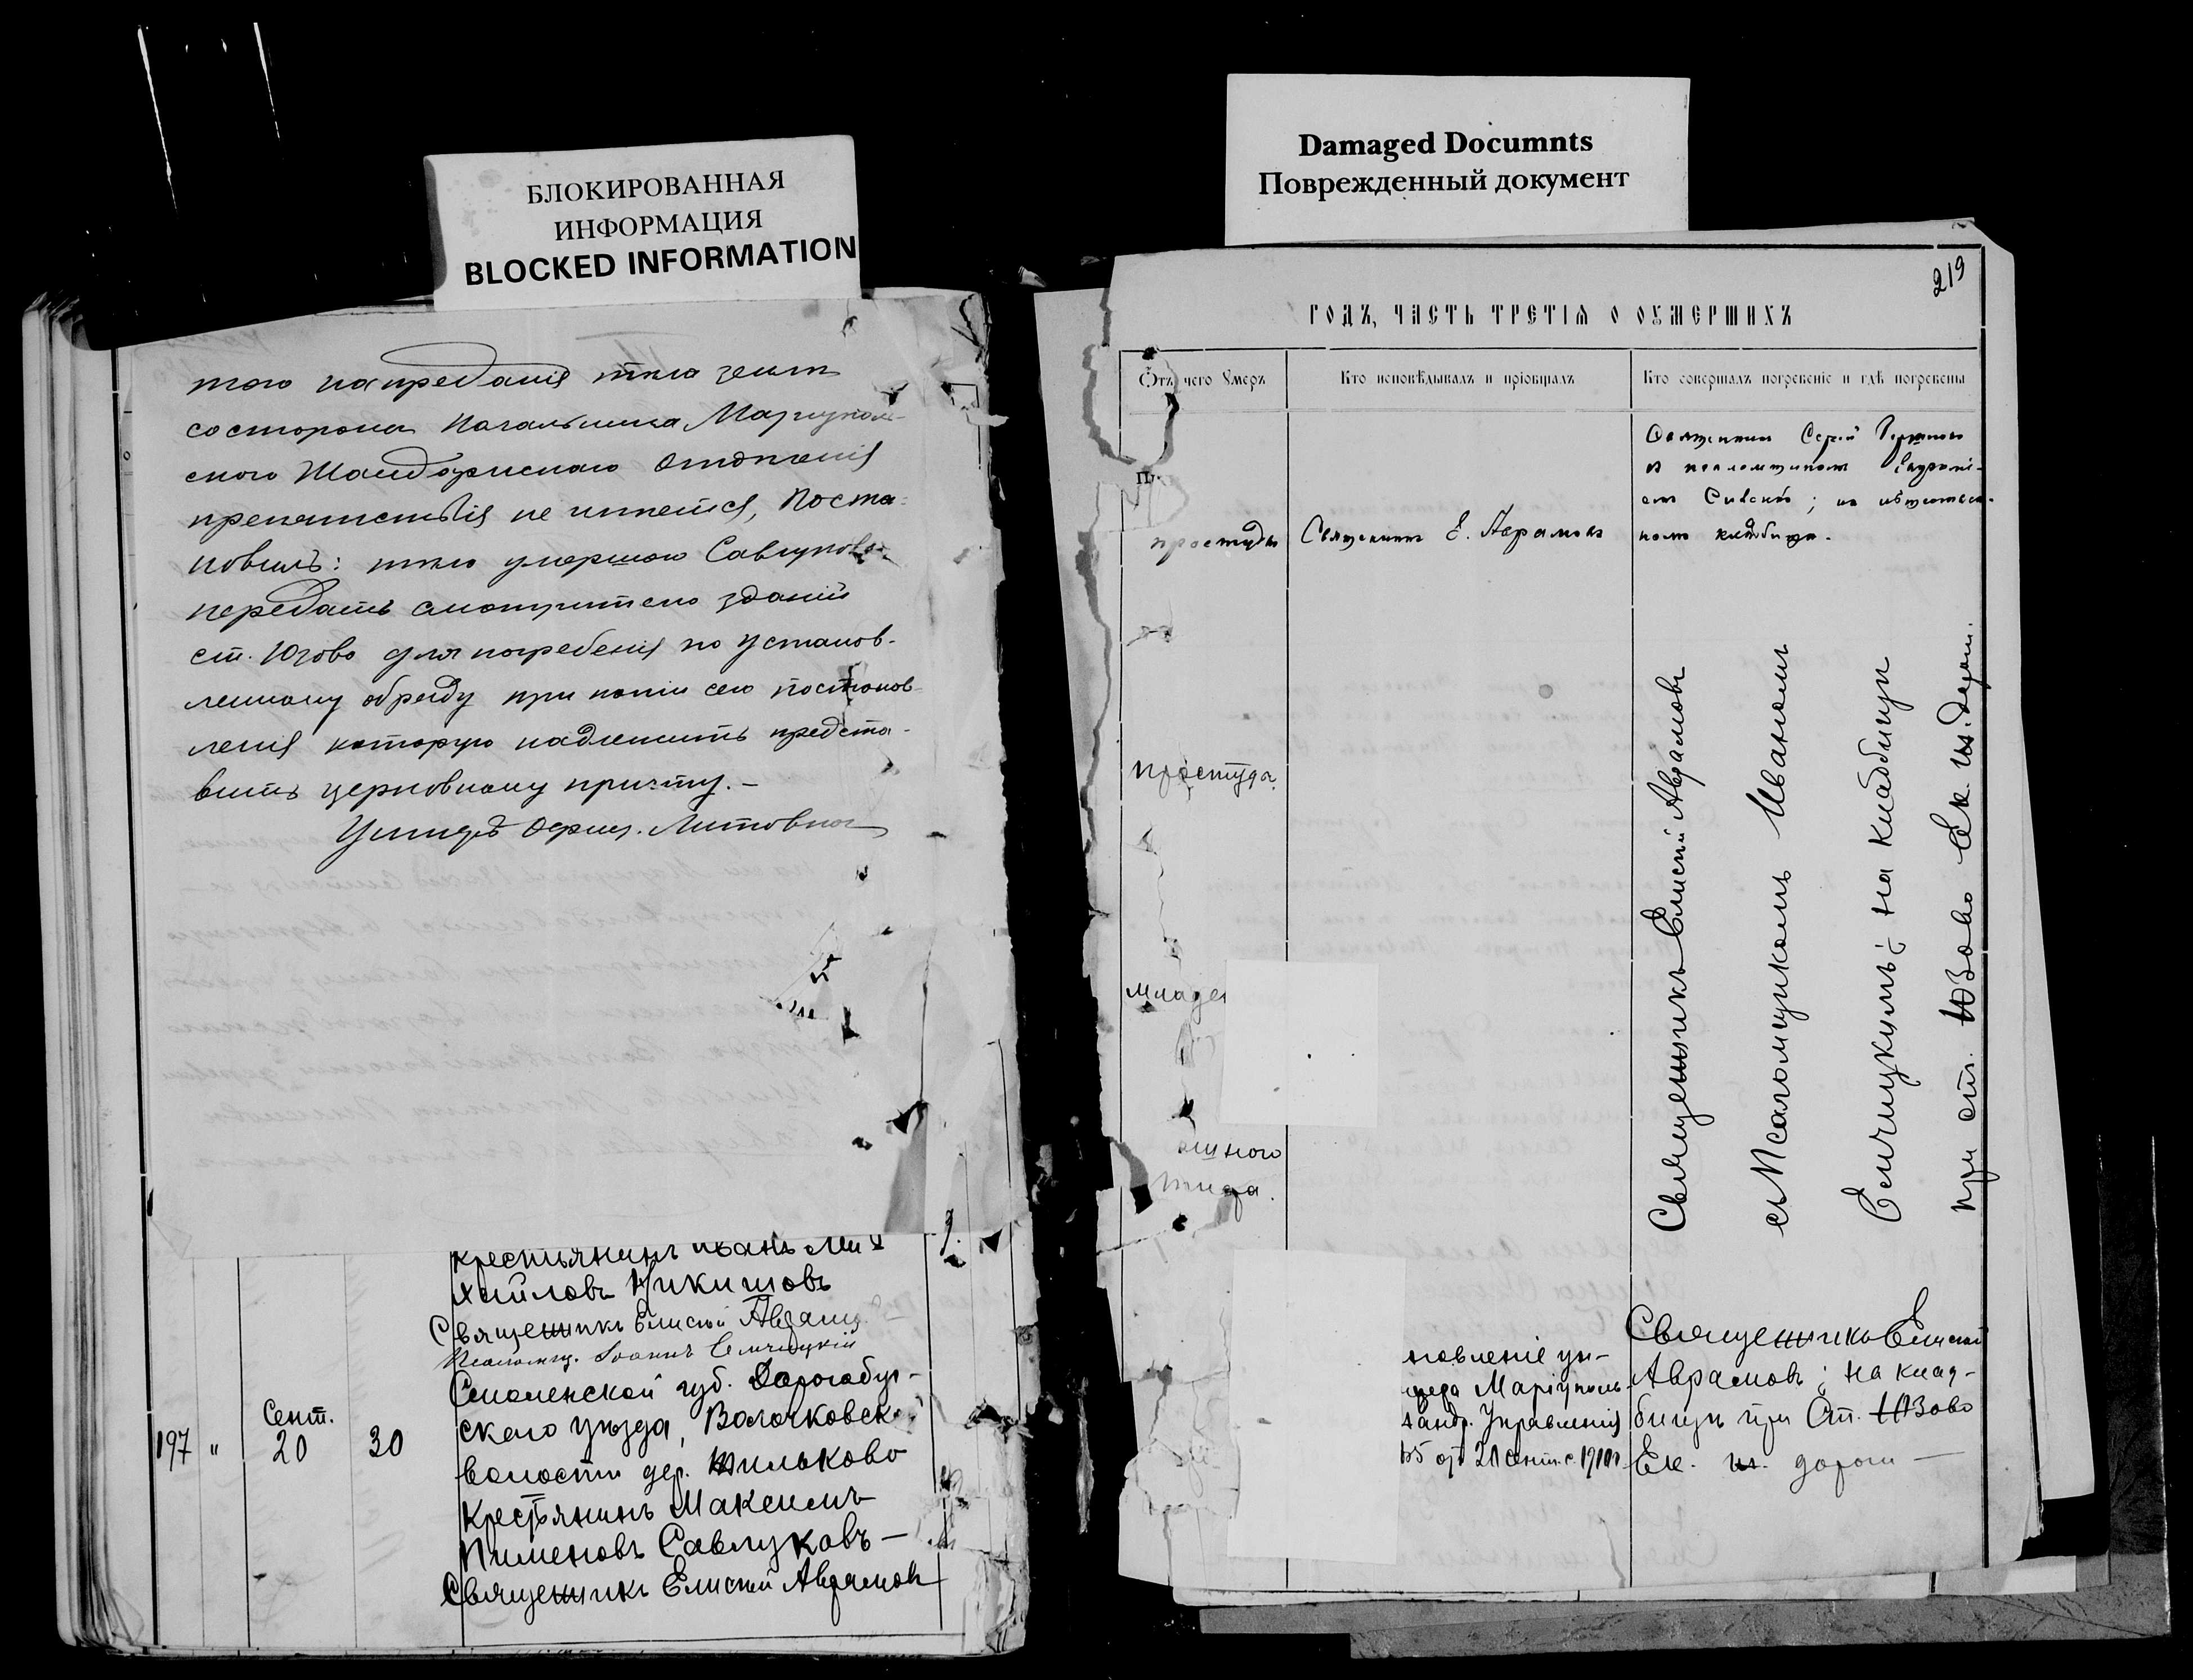 БЛОКИРОВАННАЯ
ИНФОРМАЦИЯ
BLOCKED INFORMATION
того на преданія тѣла землѣ
со стороны Начальника Маріуполь-
скаго Жандармскаго Отдѣленія
препятствія не имѣется, Поста-
новилъ: тѣло умершаго Савлукова
передать смотрителю зданій
ст. Юзово для погребенія по установ-
ленному обряду при копіи сего постанов-
ленія которую надлежитъ предста-
вить церковному причту. –
Унтеръ Офиц. Литовка
крестьянинъ Иванъ Ми-
хайловъ Никишовъ
Священникъ Елисей Аврамо
Псаломщ. Іоаннъ Селицкій
197 " Сент. 20 30
Смоленской губ. Дорогобуж-
скаго уѣзда, Волочковской
волости дер. Шильково
Крестьянинъ Максимъ
Пименовъ Савлуковъ –
Священникъ Елисей Аврамовъ
Damaged Documnts
Поврежденный документ
219
ГОДЪ, ЧАСТЬ ТРЕТІЯ О ОУМЕРШИХЪ
Отъ чего умеръ
Кто исповѣдывалъ и пріобщалъ
Кто совершалъ погребеніе и гдѣ погребены
простуды
Священникъ Е. Аврамовъ
Священникъ Сергій
съ псаломщикомъ
; на
номъ кладбищѣ.
простуда
младе
Священникъ Елисей Аврамовъ
съ Псаломщикомъ Иваномъ
; на кладбищѣ
при ст. Юзово Ек. ж. дороги.
новленіе ун-
цера Маріуполь
жандр. Управленія
85 отъ 20 сент. с. 1910 г.
Священникъ Елисей
Аврамовъ; на клад-
бищѣ при Ст. Юзово
Ек. ж. дороги –